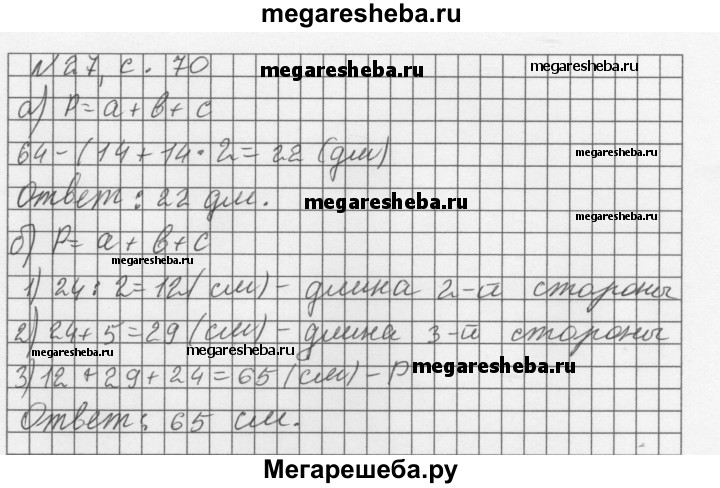 megaresheba.ru
№ 27, с. 70 megaresheba.ru megaresheba.ru
а) P = a + в + c megaresheba.ru
64 - (14 + 14 · 2 = 22 (дм) megaresheba.ru
Ответ: 22 дм. megaresheba.ru megaresheba.ru
б) P = a + в + c
megaresheba.ru
1) 24 : 2 = 12 (см) - длина 2-й стороны
2) 24 + 5 = 29 (см) - длина 3-й стороны
megaresheba.ru megaresheba.ru
3) 12 + 29 + 24 = 65 (см) - P megaresheba.ru
Ответ: 65 см.
Мегарешеба.ру